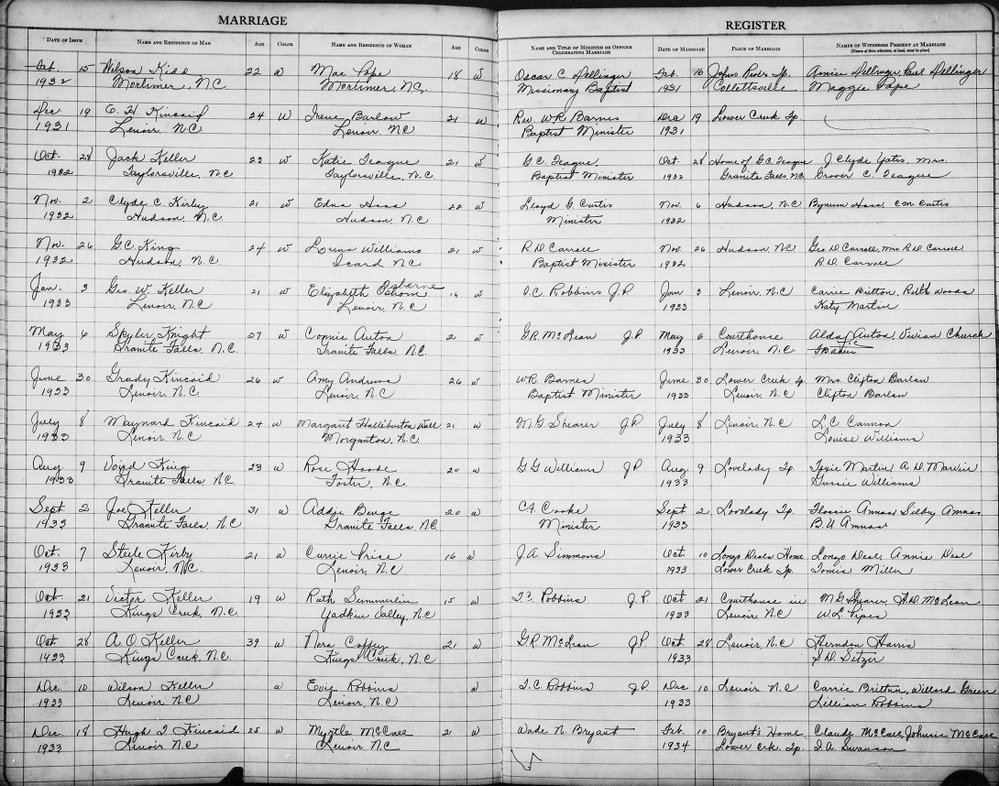 MARRIAGE
REGISTER
DATE OF ISSUE NAME AND RESIDENCE OF MAN AGE COLOR NAME AND RESIDENCE OF WOMAN AGE COLOR NAME AND TITLE OF MINISTER OR OFFICER CELEBRATING MARRIAGE DATE OF MARRIAGE PLACE OF MARRIAGE NAMES OF WITNESSES PRESENT AT MARRIAGE
Feb. 15 Wilson Kidd 22 W Mae Pope 18 W Oscar C. Dellinger Feb. 16 Johns River Tp. Annie Dellinger, Paul Dellinger
1932 Mortimer, N.C. Mortimer, N.C. Missionary Baptist 1931 Collettsville Maggie Pope
Dec 19 E. H. Kincaid 24 W Irene Barlow 21 W Rev. W.R. Barnes Dec 19 Lower Creek Tp.
1931 Lenoir, N.C. Lenoir NC Baptist Minister 1931
Oct. 28 Jack Keller 23 W Katie Teague 21 W G.C. Teague Oct 28 Home of G.C. Teague J. Clyde Yates. Mrs.
1932 Taylorsville, N.C. Taylorsville, N.C. Baptist Minister 1932 Granite Falls, N.C. Grover C. Teague
Nov. 2 Clyde C. Kirby 21 W Edna Hass 22 W Lloyd G. Curtis Nov. 6 Hudson, N.C. Bynum Hass, C.M. Curtis
1932 Hudson, N.C. Hudson, N.C. Minister 1932
Nov. 26 G.C. King 24 W Lorna Williams 21 W R.D. Carroll Nov. 26 Hudson, N.C. Geo. D. Carroll, Mrs. R.D. Carroll
1932 Hudson, N.C. Icard N.C. Baptist Minister 1932 R.D. Carroll
Jan. 3 Geo. W. Keller 21 W Elizabeth Osborne 16 W I.C. Robbins J.P. Jan 3 Lenoir, N.C. Carrie Britton, Ruth Woods
1933 Lenoir, N.C. Lenoir, N.C. 1933 Katy Martin
May 6 Knight 27 W Connie Auton 21 W G.R. McLean J.P. May 6 Courthouse Alda Auton, Vivian Church
1933 Granite Falls, N.C. Granite Falls, N.C. 1933 Lenoir, N.C.
June 30 Grady Kincaid 26 W Amy Andrews 26 W W.R. Barnes June 30 Lower Creek Tp. Mrs. Clifton Barlow
1933 Lenoir, N.C. Lenoir, N.C. Baptist Minister 1933 Lenoir, N.C. Clifton Barlow
July 8 Maynard Kincaid 24 W Margaret Halliburton Wall 21 W M.G. Shearer J.P. July 8 Lenoir, N.C. L.C. Cannon
1933 Lenoir, N.C. Morganton, N.C. 1933 Louise Williams
Aug 9 Void King 23 W Rose 20 W G.G. Williams J.P. Aug 9 Lovelady Tp. Martin, A.D.
1933 Granite Falls N.C. Foster, N.C. 1933 Gussie Williams
Sept 2 Joe Keller 31 W Addie Benge 20 W C.A. Cooke Sept 2 Lovelady Tp. Flossie Selby
1933 Granite Falls, N.C. Granite Falls, N.C. Minister 1933 B.U.
Oct. 7 Steele Kirby 21 W Currie Price 16 W J.A. Simmons Oct 10 Longo Deals Home Longo Deal, Annie Deal
1933 Lenoir, N.C. Lenoir, N.C. 1933 Lower Creek Tp. Tomie Miller
Oct 21 Victor Keller 19 W Ruth Summerlin 15 W I.C. Robbins J.P. Oct 21 Courthouse in M.G. Shearer, H.D. McLean
1933 Kings Creek, N.C. Yadkin Valley, N.C. 1933 Lenoir N.C. W.L. Pipes
Oct. 28 A.O. Keller 39 W Nora Coffey 21 W G.R. McLean J.P. Oct 28 Lenoir N.C. Herndon Harris
1933 Kings Creek, N.C. Kings Creek, N.C. 1933 S.D. Setzer
Dec 10 Wilson Keller W Evie Robbins W I.C. Robbins J.P. Dec 10 Lenoir, N.C. Carrie Brittan, Willard Green
1933 Lenoir, N.C. Lenoir, N.C. 1933 Lillian Robbins
Dec. 18 Hugh T. Kincaid 25 W Myrtle McCall 21 W Wade N. Bryant Feb. 10 Bryant's Home Claude McCall, Johnnie McCall
1933 Lenoir N.C. Lenoir N.C. 1934 Lower Crk. Tp. I.A. Swanson